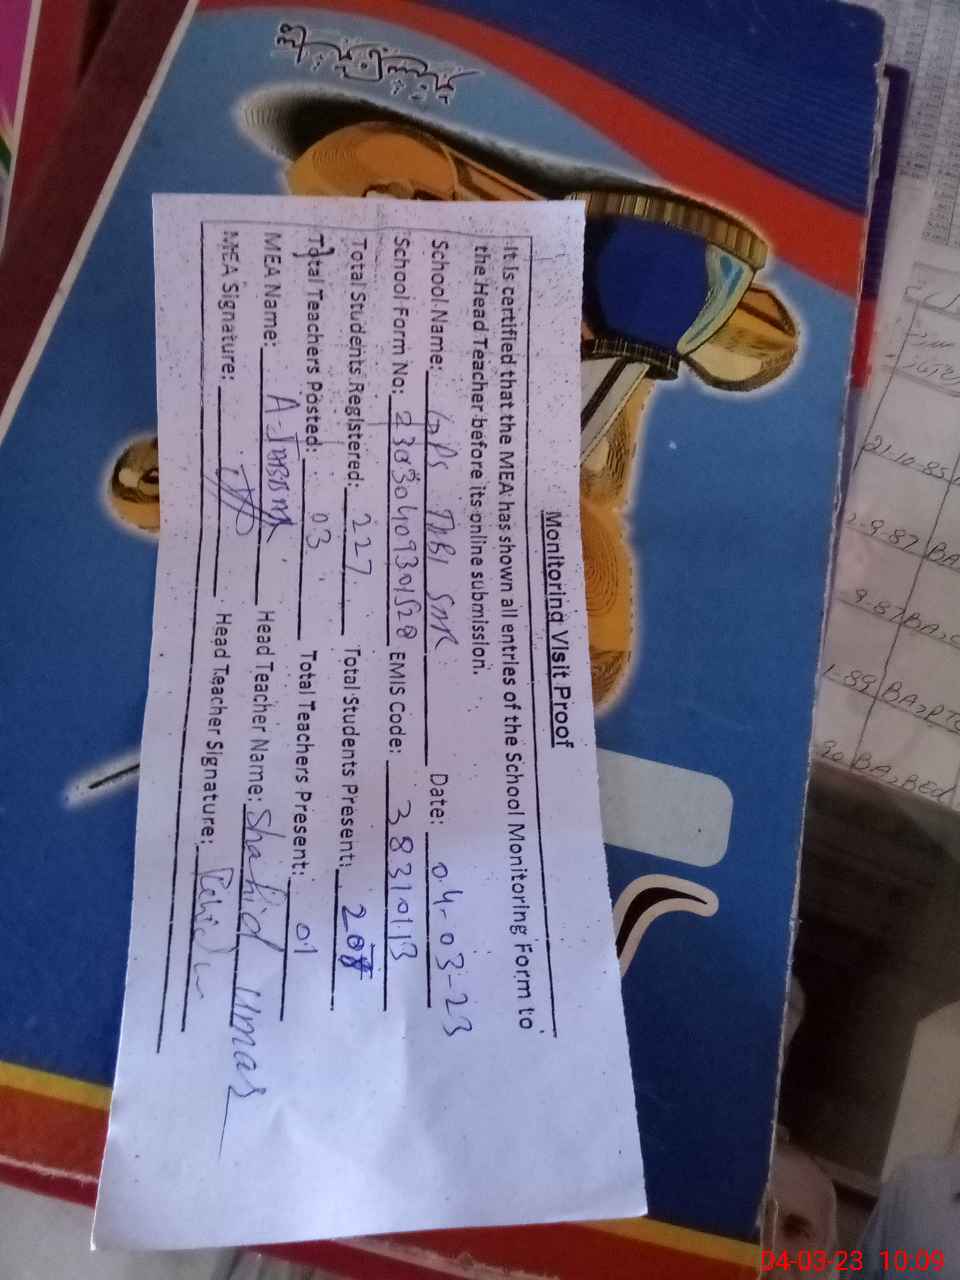 Monitoring Visit Proof
It is certified that the MEA has shown all entries of the School Monitoring Form to
the Head Teacher before its online submission.
School Name: GPS THBI SMK Date: 04-03-23
School Form No: 23030409301528 EMIS Code: 38310113
Total Students Registered: 227 Total Students Present: 208
Total Teachers Posted: 03 Total Teachers Present: 01
MEA Name: A-JABBAR Head Teacher Name: Shahid Umar
MEA Signature: Head Teacher Signature:
21-10-85
2-9-87 BA
9-87 BA
1-89 BA, PTC
90 BA, BEd
04-03-23 10:09